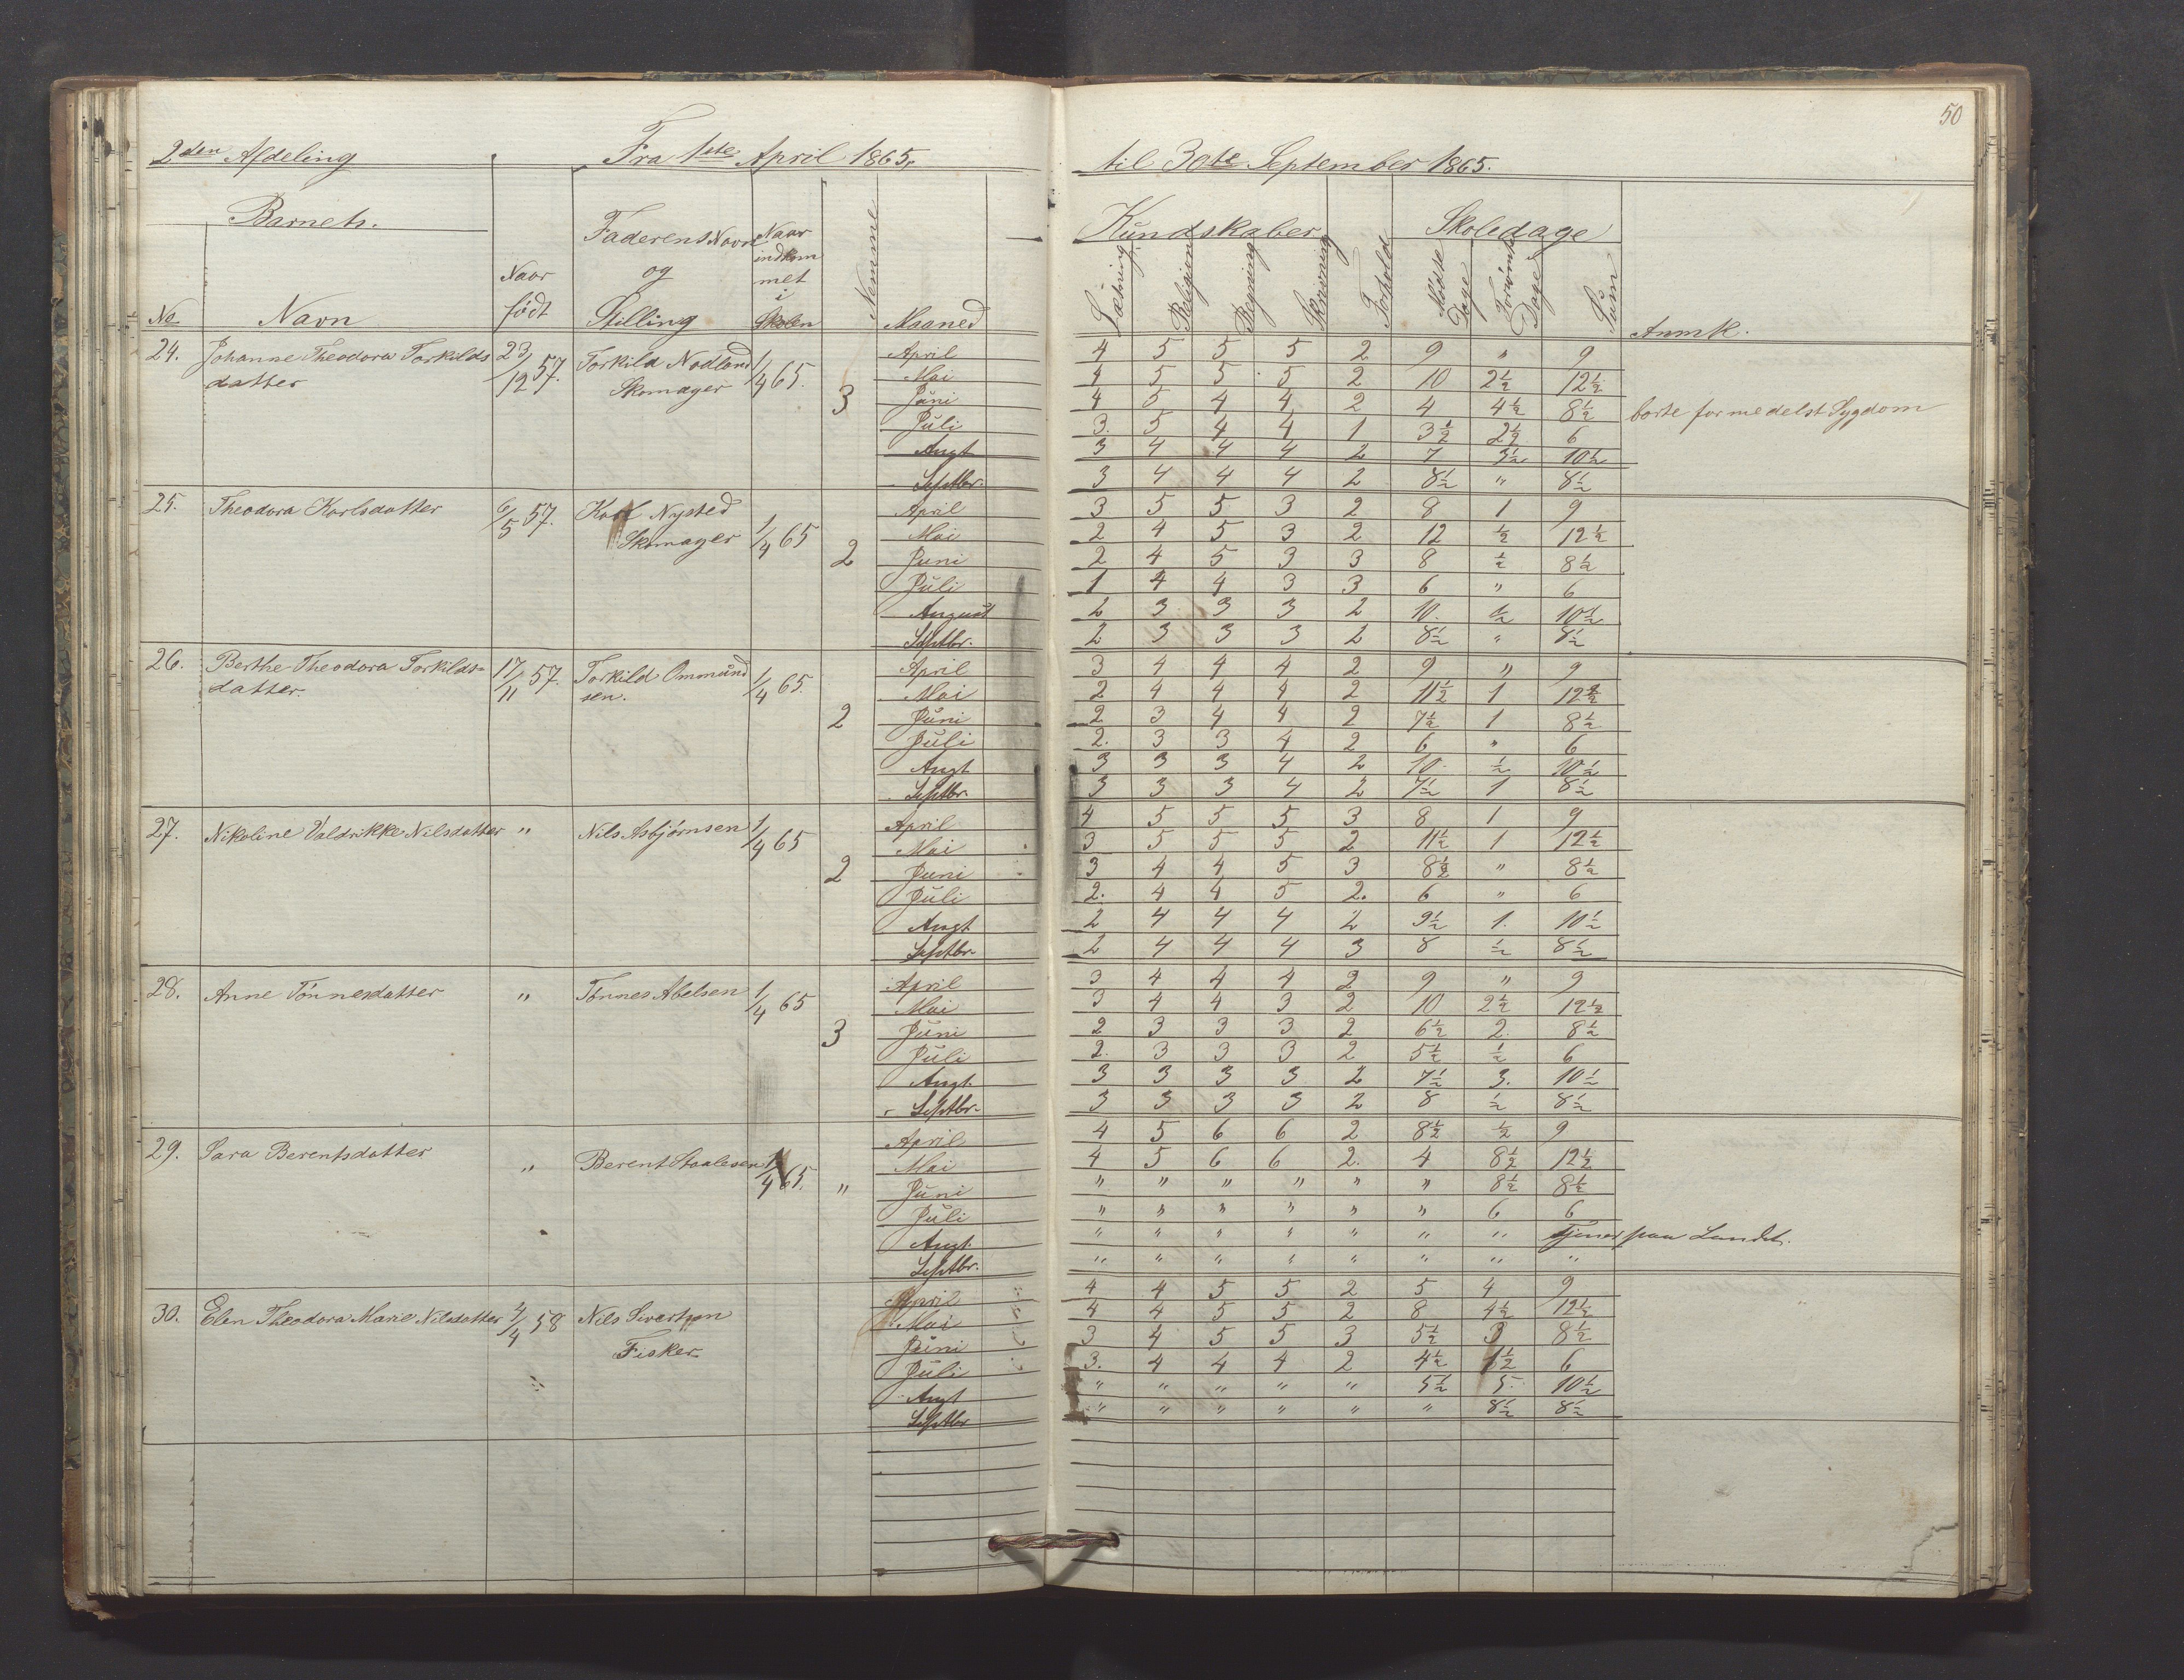 50
2den Afdeling Fra 1ste April 1865, til 30te September 1865.
Barnets. Kundskaber Skoledage
No Navn Naar født Faderens Navn og Stilling Naar indkommet i Skolen Nemme Maaned Læsning Religion Regning Skrivning Forhold Mødte Dage Forsømte Dage Sum Anmk.
24. Johanne Theodora Torkilds 23/12 57. Torkild Nodland 1/4 65. 3 April 4 5 5 5 2 9 " 9
datter Skomager Mai 4 5 5 5 2 10 2½ 12½
Juni 4 5 4 4 2 4 4½ 8½ borte formedelst Sygdom
Juli 3. 5 4 4 1 3½ 2½ 6
Augt 3 4 4 4 2 7 3½ 10½
Septbr. 3 4 4 4 2 8½ " 8½
25. Theodora Karlsdatter 6/5 57. Karl Nysted 1/4 65 2 April 3 5 5 3 2 8 1 9
Skomager Mai 2 4 5 3 2 12 ½ 12½
Juni 2 4 5 3 3 8 ½ 8½
Juli 1 4 4 3 3 6 " 6
August 2 3 3 3 2 10. ½ 10½
Septbr. 2 3 3 3 2 8½ " 8½
26. Berthe Theodora Torkilds- 17/11 57. Torkild Ommund 1/4 65. 2 April 3 4 4 4 2 9 " 9
datter. sen. Mai 2 4 4 4 2 11½ 1 12½
Juni 2 3 4 4 2 7½ 1 8½
Juli 2. 3 3 4 2 6 " 6
Augt 3 3 3 4 2 10. ½ 10½
Septbr. 3 3 3 4 2 7½ 1 8½
27. Nikoline Valdrikke Nilsdatter " Nils Asbjørnsen 1/4 65 2 April 4 5 5 5 3 8 1 9
Mai 3 5 5 5 2 11½ 1 12½
Juni 3 4 4 5 3 8½ " 8½
Juli 2. 4 4 5 2. 6 " 6
Augt 2 4 4 4 2 9½ 1. 10½
Septbr. 2 4 4 4 3 8 ½ 8½
28. Anne Tönnesdatter " Tønnes Abelsen 1/4 65 3 April 3 4 4 4 2 9 " 9
Mai 3 4 4 3 2 10 2½ 12½
Juni 2 3 3 3 2 6½ 2. 8½
Juli 2. 3 3 3 2 5½ ½ 6
Augt. 3 3 3 3 2 7½ 3. 10½
Septbr. 3 3 3 3 2 8 ½ 8½
29. Sara Berentsdatter " Berent Staalesen 1/4 65. " April 4 5 6 6 2 8½ ½ 9
Mai 4 5 6 6 2. 4 8½ 12½
Juni " " " " " " 8½ 8½
Juli " " " " " " 6 6
Augt. " " " " " " " tjener paa Landet.
Septbr. " " " " " " " "
30. Elen Theodora Marie Nilsdatter 4/4 58 Nils Sivertsen April 4 4 5 5 2 5 4 9
Fisker Mai 4 4 5 5 2 8 4½ 12½
Juni 3 4 5 5 3 5½ 3 8½
Juli 3. 4 4 4 2 4½ 1½ 6
Augt " " " " " 5½ 5. 10½
Septbr " " " " " " 8½ 8½